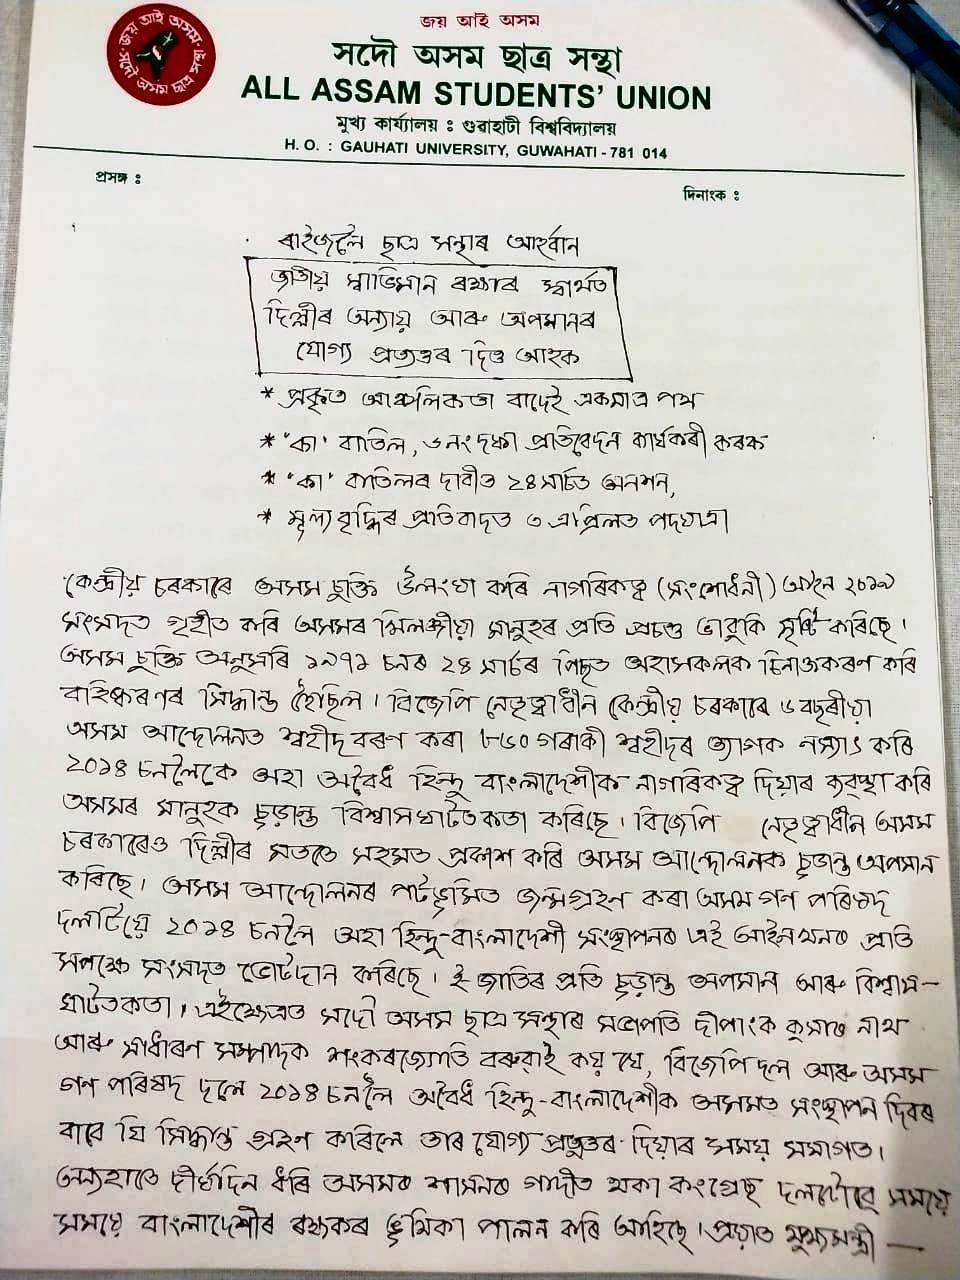 জয় আই অসম
সদৌ অসম ছাত্ৰ সন্থা
জয় আই অসম
সদৌ অসম ছাত্ৰ সন্থা
ALL ASSAM STUDENTS' UNION
মুখ্য কাৰ্য্যালয় : গুৱাহাটী বিশ্ববিদ্যালয়
H. O. : GAUHATI UNIVERSITY, GUWAHATI - 781 014
প্ৰসঙ্গ :
দিনাংক :
ৰাইজলৈ ছাত্ৰ সন্থাৰ আহ্বান
জাতীয় স্বাভিমান ৰক্ষাৰ স্বাৰ্থত
দিল্লীৰ অন্যায় আৰু অপমানৰ
যোগ্য প্ৰত্যুত্তৰ দিওঁ আহক
* প্ৰকৃত আঞ্চলিকতা বাদেই একমাত্ৰ পথ
* 'কা' বাতিল, ৬নং দফা প্ৰতিবেদন কাৰ্যকৰী কৰক
* 'কা' বাতিলৰ দাবীত ২৪ মাৰ্চত অনশন,
* মূল্যবৃদ্ধিৰ প্ৰতিবাদত ৩ এপ্ৰিলত পদযাত্ৰা
কেন্দ্ৰীয় চৰকাৰে অসম চুক্তি উলংঘা কৰি নাগৰিকত্ব (সংশোধনী) আইন ২০১৯
সংসদত গৃহীত কৰি অসমৰ খিলঞ্জীয়া মানুহৰ প্ৰতি প্ৰচণ্ড ভাবুকি সৃষ্টি কৰিছে।
অসম চুক্তি অনুসৰি ১৯৭১ চনৰ ২৪ মাৰ্চৰ পিছত অহাসকলক চিনাক্তকৰণ কৰি
বহিষ্কৰণৰ সিদ্ধান্ত হৈছিল। বিজেপি নেতৃত্বাধীন কেন্দ্ৰীয় চৰকাৰে ৬ বছৰীয়া
অসম আন্দোলনত শ্বহীদ বৰণ কৰা ৮৬০ গৰাকী শ্বহীদৰ ত্যাগক নস্যাৎ কৰি
২০১৪ চনলৈকে অহা অবৈধ হিন্দু বাংলাদেশীক নাগৰিকত্ব দিয়াৰ ব্যৱস্থা কৰি
অসমৰ মানুহক চূড়ান্ত বিশ্বাসঘাটকতা কৰিছে। বিজেপি নেতৃত্বাধীন অসম
চৰকাৰেও দিল্লীৰ মততে সহমত প্ৰকাশ কৰি অসম আন্দোলনক চূড়ান্ত অপমান
কৰিছে। অসম আন্দোলনৰ পটভূমিত জন্মগ্ৰহণ কৰা অসম গণ পৰিষদ
দলটিয়ে ২০১৪ চনলৈ অহা হিন্দু-বাংলাদেশী সংস্থাপনৰ এই আইনখনৰ প্ৰতি
সপক্ষে সংসদত ভোটদান কৰিছে। ই জাতিৰ প্ৰতি চূড়ান্ত অপমান আৰু বিশ্বাস-
ঘাটকতা। এইক্ষেত্ৰত সদৌ অসম ছাত্ৰ সন্থাৰ সভাপতি দীপাংক কুমাৰ নাথ
আৰু সাধাৰণ সম্পাদক শংকৰজ্যোতি বৰুৱাই কয় যে, বিজেপি দল আৰু অসম
গণ পৰিষদ দলে ২০১৪ চনলৈ অবৈধ হিন্দু-বাংলাদেশীক অসমত সংস্থাপন দিবৰ
বাবে যি সিদ্ধান্ত গ্ৰহণ কৰিলে তাৰ যোগ্য প্ৰত্যুত্তৰ দিয়াৰ সময় সমাগত।
অন্যহাতে দীৰ্ঘদিন ধৰি অসমৰ শাসনৰ গাদীত থকা কংগ্ৰেছ দলটোৱে সময়ে
সময়ে বাংলাদেশীৰ ৰক্ষকৰ ভূমিকা পালন কৰি আহিছে। প্ৰয়াত মুখ্যমন্ত্ৰী —